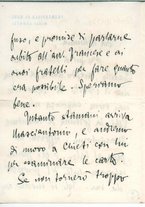 fuso, e promise di parlarne
subito all'avv. Francese e ai
suoi fratelli per fare quanto
era possibile. Speriamo
bene.
Intanto stamani arriva
Masciantonio, e andremo
di nuovo a Chieti con lui
per esaminare le carte.
Se non tornerò troppo